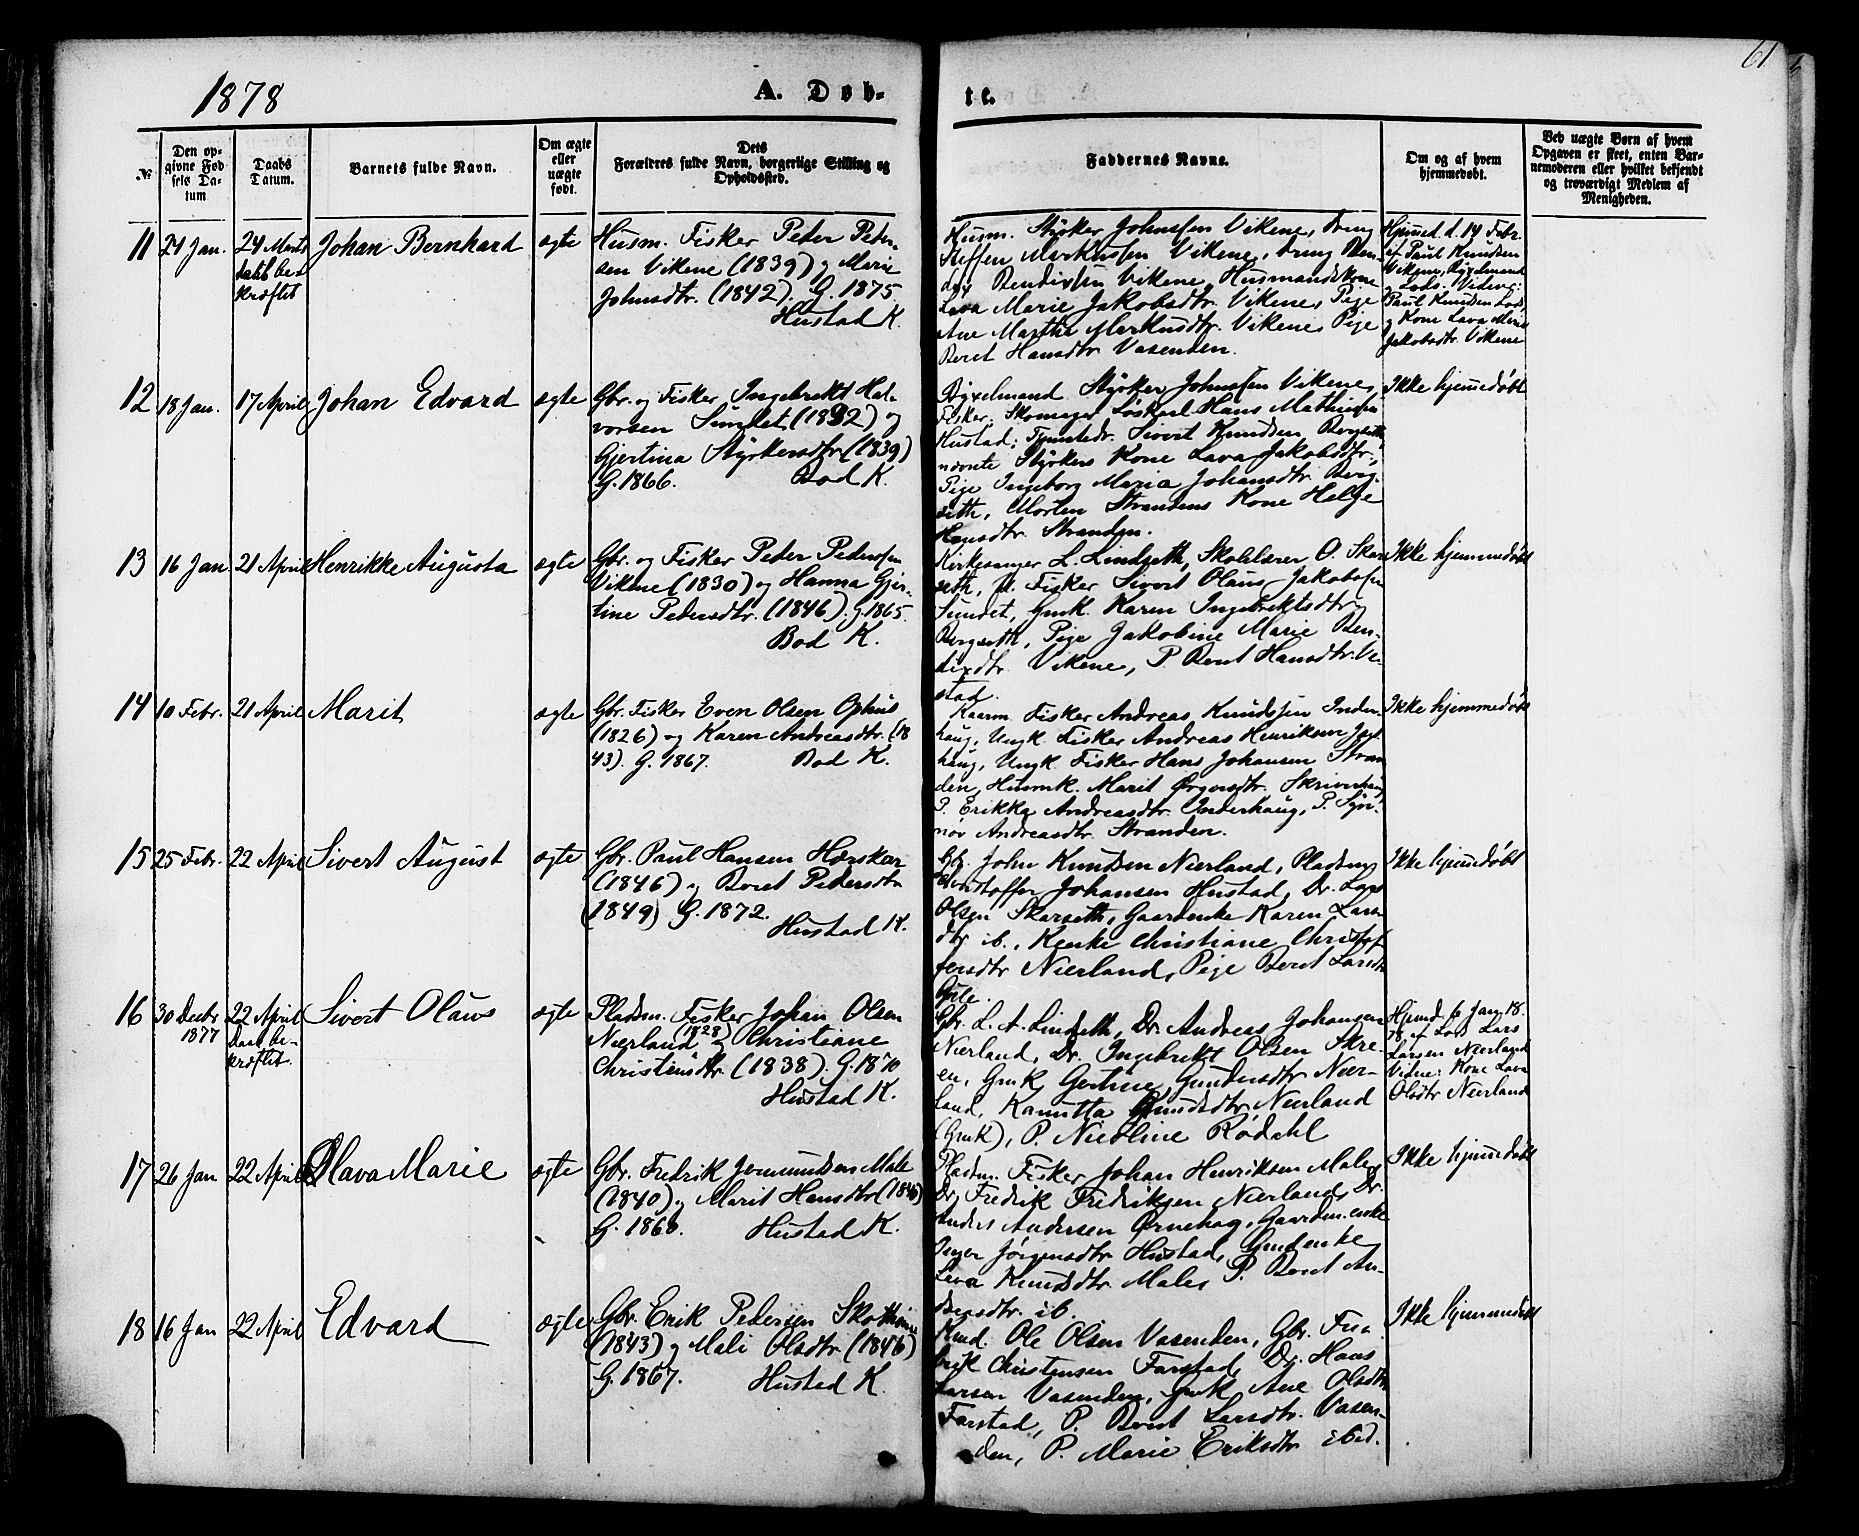 61
1878
A. Døb-
te.
№
Den op-
givne Fød
sels Da-
tum
Daabs
Datum.
Barnets fulde Navn.
Om ægte
eller
uægte
født.
Dets
Forældres fulde Navn, borgerlige Stilling og
Opholdssted.
Faddernes Navne.
Om og af hvem
hjemmedøbt.
Ved uægte Børn af hvem
Opgaven er skeet, enten Bar-
nemoderen eller hvilket bekjendt
og troværdigt Medlem af
Menigheden.
11
24 Jan.
24 Marts
Daab be-
kræftet
Johan Bernhard
ægte
Husm. Fisker Peder Peder-
sen Vikene (1839) og Marie
Johnsdtr. (1842). G. 1875
Hustad K.
Husm. Styrker Johnssen Vikene, Dreng
Steffen Markussen Vikene, Dreng Ben-
dix Bendixsen Vikene, Husmandskone
Lava Marie Jakobsdtr. Vikene, Pige
Ane Martha Markusdtr. Vikene, Pige
Beret Hansdtr. Vasenden.
Hjemd. d. 14 Febr.
af Paul Knudsen
Vikene, Byxelmand
og Lods. Vidne:
Paul Knudsen Lods
og Kone Lava Marie
Jakobsdtr. Vikene
12
18 Jan.
17 April
Johan Edvard
ægte
Gbr. og Fisker Ingebrekt Hal-
vorsen Sundet (1832) og
Gjertina Styrkersdtr. (1839)
G. 1866. Bod K.
Byxelmand Styrker Johnssen Vikene,
Fisker, Skomager Løskarl Hans Mathissen
Hustad; Tjenestedr. Sivert Knudsen Bergseth
nævnte Styrkers Kone Lava Jakobsdtr.,
Pige Ingeborg Maria Johansdtr. Berg-
seth, Morten Strandens Kone Helge
Hansdtr. Stranden.
Ikke hjemedøbt
13
16 Jan
21 April
Henrikke Augusta
ægte
Gbr. og Fisker Peder Pederssen
Vikene (1830) og Hanna Gjer-
tine Pedersdtr. (1846). G. 1865.
Bod K.
Kirkesanger L. Lindseth, Skolelærer O. Skar-
seth, U. Fisker Sivert Olaus Jakobssen
Sundet, Gmk. Karen Ingebrektsdtr.
Bergseth, Pige Jakobine Marie Ben-
dixdtr. Vikene, P. Beret Hansdtr. Ve-
stad.
Ikke hjemmedøbt
14
10 Febr.
21 April
Marit
ægte
Gbr. Fisker Even Olsen Ophus
(1826) og Karen Andreasdtr. (18
43). G. 1867. Bod K.
Kaarm. Fisker Andreas Knudssen Inder-
haug, Ungk. Fisker Andreas Henriksen
haug, Ungk. Fisker Hans Johansen Stran
den, Husmk. Marit Skriver
P. Erikka Andreasdtr. Inderhaug, P. Syn-
növ Andreasdtr. Stranden.
Ikke hjemmedøbt
15
25 Febr.
22 April
Sivert August
ægte
Gbr. Paul Hansen Harskar
(1846) og Beret Pedersdtr
(1849) G. 1872.
Hustad K.
Gbr. John Knudsen Nierland, Pladsmg
Christoffer Johansen Hustad, Dr. Lars
Olsen Skarseth, Gaardenke Karen Lars-
dtr. ib., Kenke Christiane Christof-
fersdtr Nierland, Pige Beret Larsdtr
Gule.
Ikke hjemedøbt
16
30 Decbr
1877
22 April
Daab be-
kræftet.
Sivert Olaus
ægte
Pladsm. Fisker Johan Olsen
Nierland (1828) og Christiane
Christensdtr. (1838). G. 1870
Hustad K.
Gbr. L. A. Lindseth, Dr. Andreas Johansen
Nierland, Dr. Ingebrikt Olsen Skre-
en, Gmk. Gertine Gundersdtr Nier-
land, Kanutta Knudsdtr. Nierland
(Gmk), P. Nicoline Rødahl
Hjemd. 6 Jan 18-
78 af Lods Lars
Larsen Nierland
Vidne: Kone Lava
Olsdtr Nierland
17
26 Jan
22 April
Olava Marie
ægte
Gbr. Fredrik Jomundsen Male
(1840) og Marit Hansdtr (1840)
G. 1866. Hustad K.
Pladsm. Fisker Johan Henriksen Male,
Dr. Fredrik Fredriksen Nierland, Dr.
Anders Andersen Ørnehag, Gaardm. enke
Inger Jörgensdtr Hustad, Gmdenke
Lava Knudsdtr. Male, P. Beret An-
dersdtr. ib.
Ikke hjemedøbt
18
16 Jan
22 April
Edvard
ægte
Gbr. Erik Pedersen
(1843) og Mali Olsdtr (1846)
G. 1867. Hustad K.
Kmd. Ole Olsen Vasenden, Gbr. Fre-
drik Christensen Farstad, Dr. Hans
Larsen Vasenden, Gmk Ane Olsdtr
Farstad, P. Beret Larsdtr. Vasen-
den, P. Marie Eriksdtr ibid.
Ikke hjemmedøbt